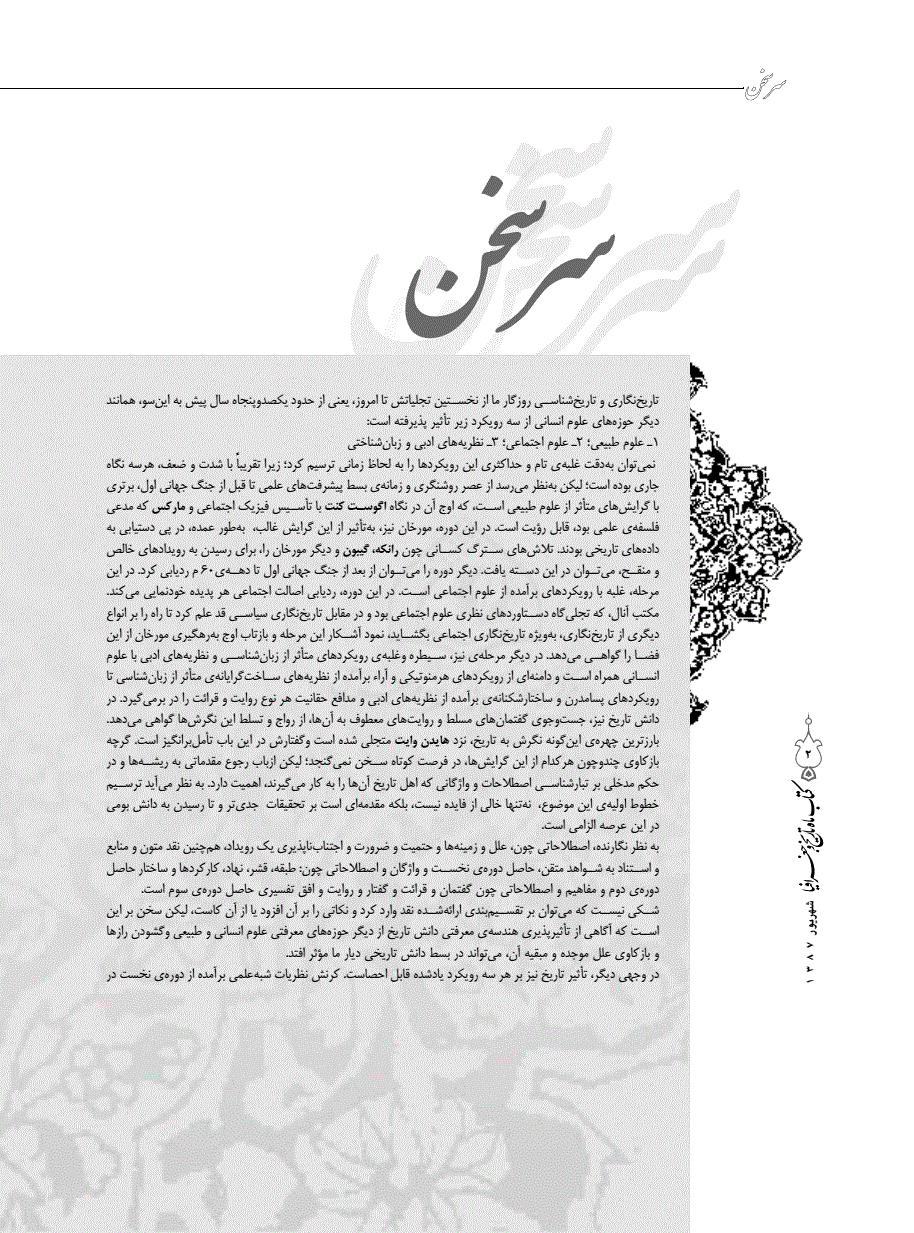 سر سخن
سر سخن
تاریخ‌نگاری و تاریخ‌شناسی روزگار ما از نخستین تجلیاتش تا امروز، یعنی از حدود یکصدوپنجاه سال پیش به این‌سو، همانند
دیگر حوزه‌های علوم انسانی از سه رویکرد زیر تأثیر پذیرفته است:
۱ـ علوم طبیعی؛ ۲ـ علوم اجتماعی؛ ۳ـ نظریه‌های ادبی و زبان‌شناختی
نمی‌توان به‌دقت غلبه‌ی تام و حداکثری این رویکردها را به لحاظ زمانی ترسیم کرد؛ زیرا تقریباً با شدت و ضعف، هرسه نگاه
جاری بوده است؛ لیکن به‌نظر می‌رسد از عصر روشنگری و زمانه‌ی بسط پیشرفت‌های علمی تا قبل از جنگ جهانی اول، برتری
با گرایش‌های متأثر از علوم طبیعی است، که اوج آن در نگاه اگوست کنت با تأسیس فیزیک اجتماعی و مارکس که مدعی
فلسفه‌ی علمی بود، قابل رؤیت است. در این دوره، مورخان نیز، به‌تأثیر از این گرایش غالب، به‌طور عمده، در پی دستیابی به
داده‌های تاریخی بودند. تلاش‌های سترگ کسانی چون رانکه، گیبون و دیگر مورخان را، برای رسیدن به رویدادهای خالص
و منقح، می‌توان در این دسته یافت. دیگر دوره را می‌توان از بعد از جنگ جهانی اول تا دهه‌ی ۶۰ م ردیابی کرد. در این
مرحله، غلبه با رویکردهای برآمده از علوم اجتماعی است. در این دوره، ردیابی اصالت اجتماعی هر پدیده خودنمایی می‌کند.
مکتب آنال، که تجلی‌گاه دستاوردهای نظری علوم اجتماعی بود و در مقابل تاریخ‌نگاری سیاسی قد علم کرد تا راه را بر انواع
دیگری از تاریخ‌نگاری، به‌ویژه تاریخ‌نگاری اجتماعی بگشاید، نمود آشکار این مرحله و بازتاب اوج به‌رهگیری مورخان از این
فضا را گواهی می‌دهد. در دیگر مرحله‌ی نیز، سیطره وغلبه‌ی رویکردهای متأثر از زبان‌شناسی و نظریه‌های ادبی با علوم
انسانی همراه است و دامنه‌ای از رویکردهای هرمنوتیکی و آراء برآمده از نظریه‌های ساخت‌گرایانه‌ی متأثر از زبان‌شناسی تا
رویکردهای پسامدرن و ساختارشکنانه‌ی برآمده از نظریه‌های ادبی و مدافع حقانیت هر نوع روایت و قرائت را در برمی‌گیرد. در
دانش تاریخ نیز، جست‌وجوی گفتمان‌های مسلط و روایت‌های معطوف به آن‌ها، از رواج و تسلط این نگرش‌ها گواهی می‌دهد.
بارزترین چهره‌ی این‌گونه نگرش به تاریخ، نزد هایدن وایت متجلی شده است وگفتارش در این باب تأمل‌برانگیز است. گرچه
بازکاوی چندوچون هرکدام از این گرایش‌ها، در فرصت کوتاه سخن نمی‌گنجد؛ لیکن ازباب رجوع مقدماتی به ریشه‌ها و در
حکم مدخلی بر تبارشناسی اصطلاحات و واژگانی که اهل تاریخ آن‌ها را به کار می‌گیرند، اهمیت دارد. به نظر می‌آید ترسیم
خطوط اولیه‌ی این موضوع، نه‌تنها خالی از فایده نیست، بلکه مقدمه‌ای است بر تحقیقات جدی‌تر و تا رسیدن به دانش بومی
در این عرصه الزامی است.
به نظر نگارنده، اصطلاحاتی چون، علل و زمینه‌ها و حتمیت و ضرورت و اجتناب‌ناپذیری یک رویداد، هم‌چنین نقد متون و منابع
و استناد به شواهد متقن، حاصل دوره‌ی نخست و واژگان و اصطلاحاتی چون: طبقه، قشر، نهاد، کارکردها و ساختار حاصل
دوره‌ی دوم و مفاهیم و اصطلاحاتی چون گفتمان و قرائت و گفتار و روایت و افق تفسیری حاصل دوره‌ی سوم است.
شکی نیست که می‌توان بر تقسیم‌بندی ارائه‌شده نقد وارد کرد و نکاتی را بر آن افزود یا از آن کاست، لیکن سخن بر این
است که آگاهی از تأثیرپذیری هندسه‌ی معرفتی دانش تاریخ از دیگر حوزه‌های معرفتی علوم انسانی و طبیعی وگشودن رازها
و بازکاوی علل موجده و مبقیه آن، می‌تواند در بسط دانش تاریخی دیار ما مؤثر افتد.
در وجهی دیگر، تأثیر تاریخ نیز بر هر سه رویکرد یادشده قابل احصاست. کرنش نظریات شبه‌علمی برآمده از دوره‌ی نخست در
۲
کتاب ماه تاریخ و جغرافیا
شهریور ۱۳۸۷